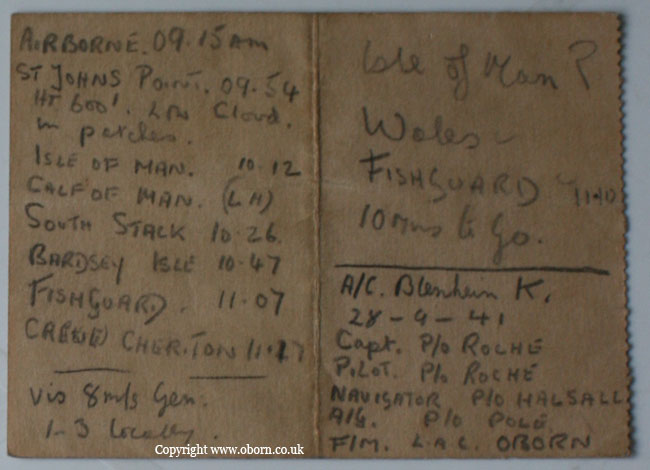 AIRBORNE. 09.15AM
ST JOHNS POINT. 09.54
HT 600'. LOW CLOUD.
in patches.
ISLE OF MAN. 10.12
CALF OF MAN. (LH)
SOUTH STACK 10.26.
BARDSEY ISLE 10.47
FISHGUARD. 11.07
CHERITON 11.17
Vis 8mls Gen.
1-3 Locally.
Isle of Man ?
Wales
FISHGUARD
10 Mins to Go.
A/C. Blenheim K.
28-9-41
Capt. P/O ROCHE
PILOT. P/O ROCHE
NAVIGATOR P/O HALSALL
A/G. P/O POLE.
F/M. L.A.C. OBORN
Copyright www.oborn.co.uk